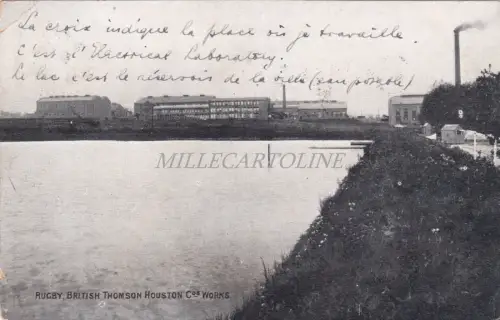 La croix indique la place où je travaille.
C'est l'Electrical Laboratory
le lac c'est le réservoir de la ville (eau potable)
MILLECARTOLINE
RUGBY, BRITISH THOMSON HOUSTON Cos WORKS.